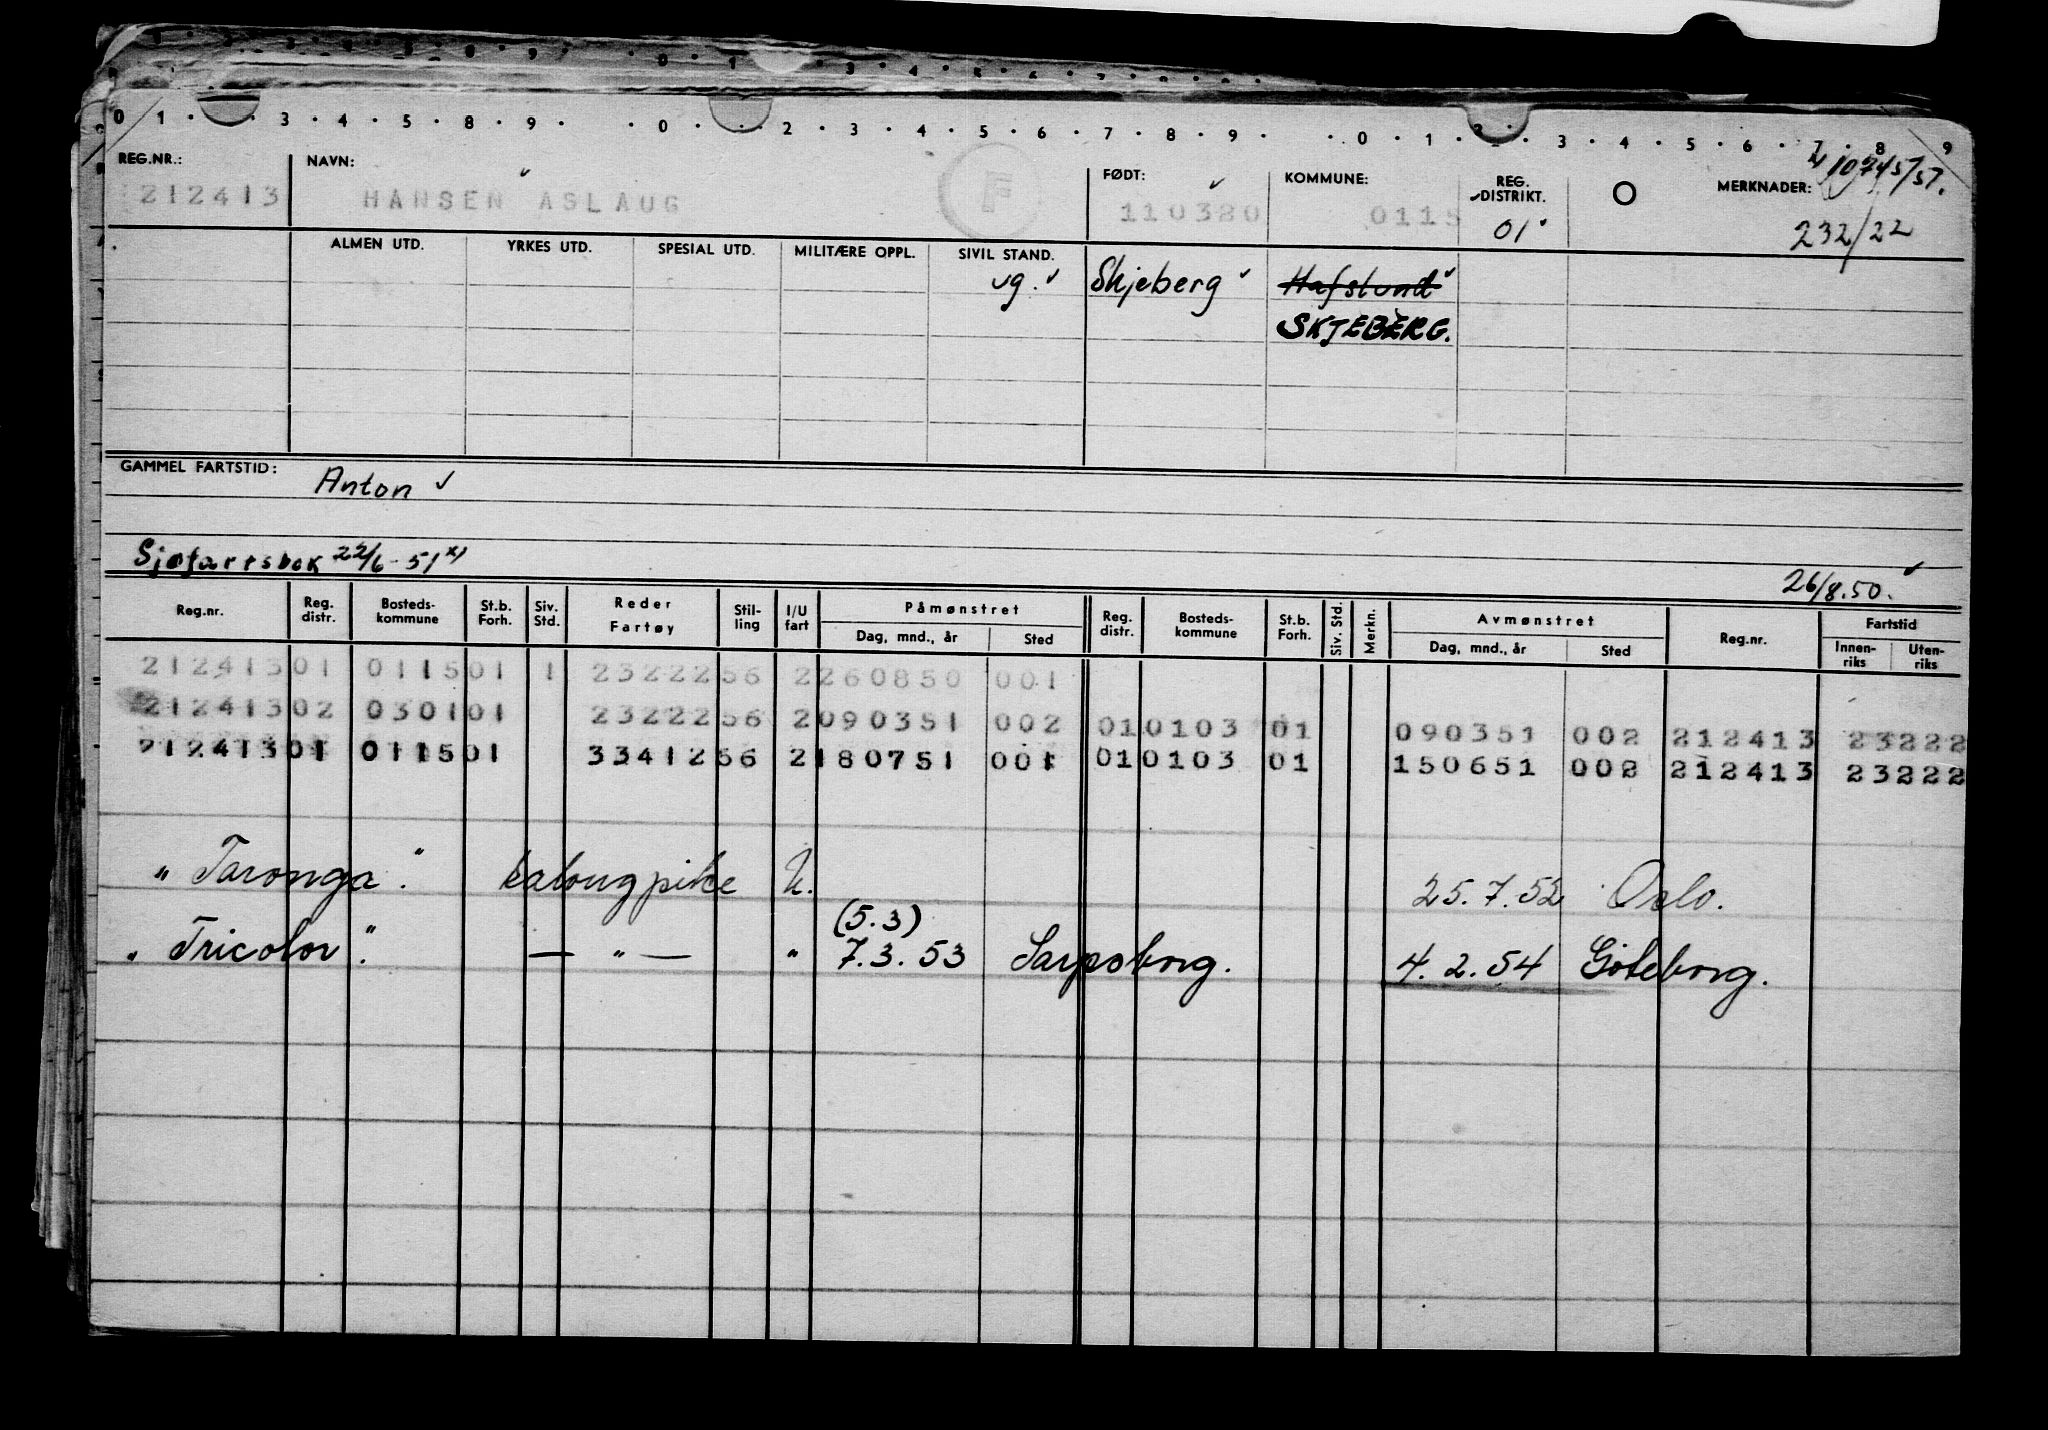 0 1 · · 3 · 4 · 5 · 8 · 9 · · 0 · · 2 · 3 · 4 · 5 · 6 · 7 · 8 · 9 · · 0 · 1 · 2 · 3 · 4 · 5 · 6 · 7 · 8 · 9
REG.NR.: NAVN: FØDT: KOMMUNE: REG. DISTRIKT. MERKNADER:
212413 HANSEN ASLAUG F 110380 0115 01
232/22
ALMEN UTD. YRKES UTD. SPESIAL UTD. MILITÆRE OPPL. SIVIL STAND.
ug. Skjeberg Hafslund
SKJEBERG.
GAMMEL FARTSTID: Anton
Sjøfartsbok 22/6-51 x) 26/8.50.
Reg.nr. Reg. distr. Bosteds-kommune St.b. Forh. Siv. Std. Reder Fartøy Stil-ling I/U fart Påmønstret Dag, mnd., år Sted Reg. distr. Bosteds-kommune St.b. Forh. Siv. Std. Merkn. Avmønstret Dag, mnd., år Sted Reg.nr. Fartstid Innen-riks Uten-riks
21241301 011501 1 2322256 2260850 001
21241302 030101 2322256 2090351 002 010103 01 090351 002 212413 23222
21241301 011501 3341256 2180751 001 010103 01 150651 002 212413 23222
"Taronga". salongpike U. 25.7.52 Oslo.
(5.3)
"Tricolor". — " — " 7.3.53 Sarpsborg. 4.2.54 Göteborg.